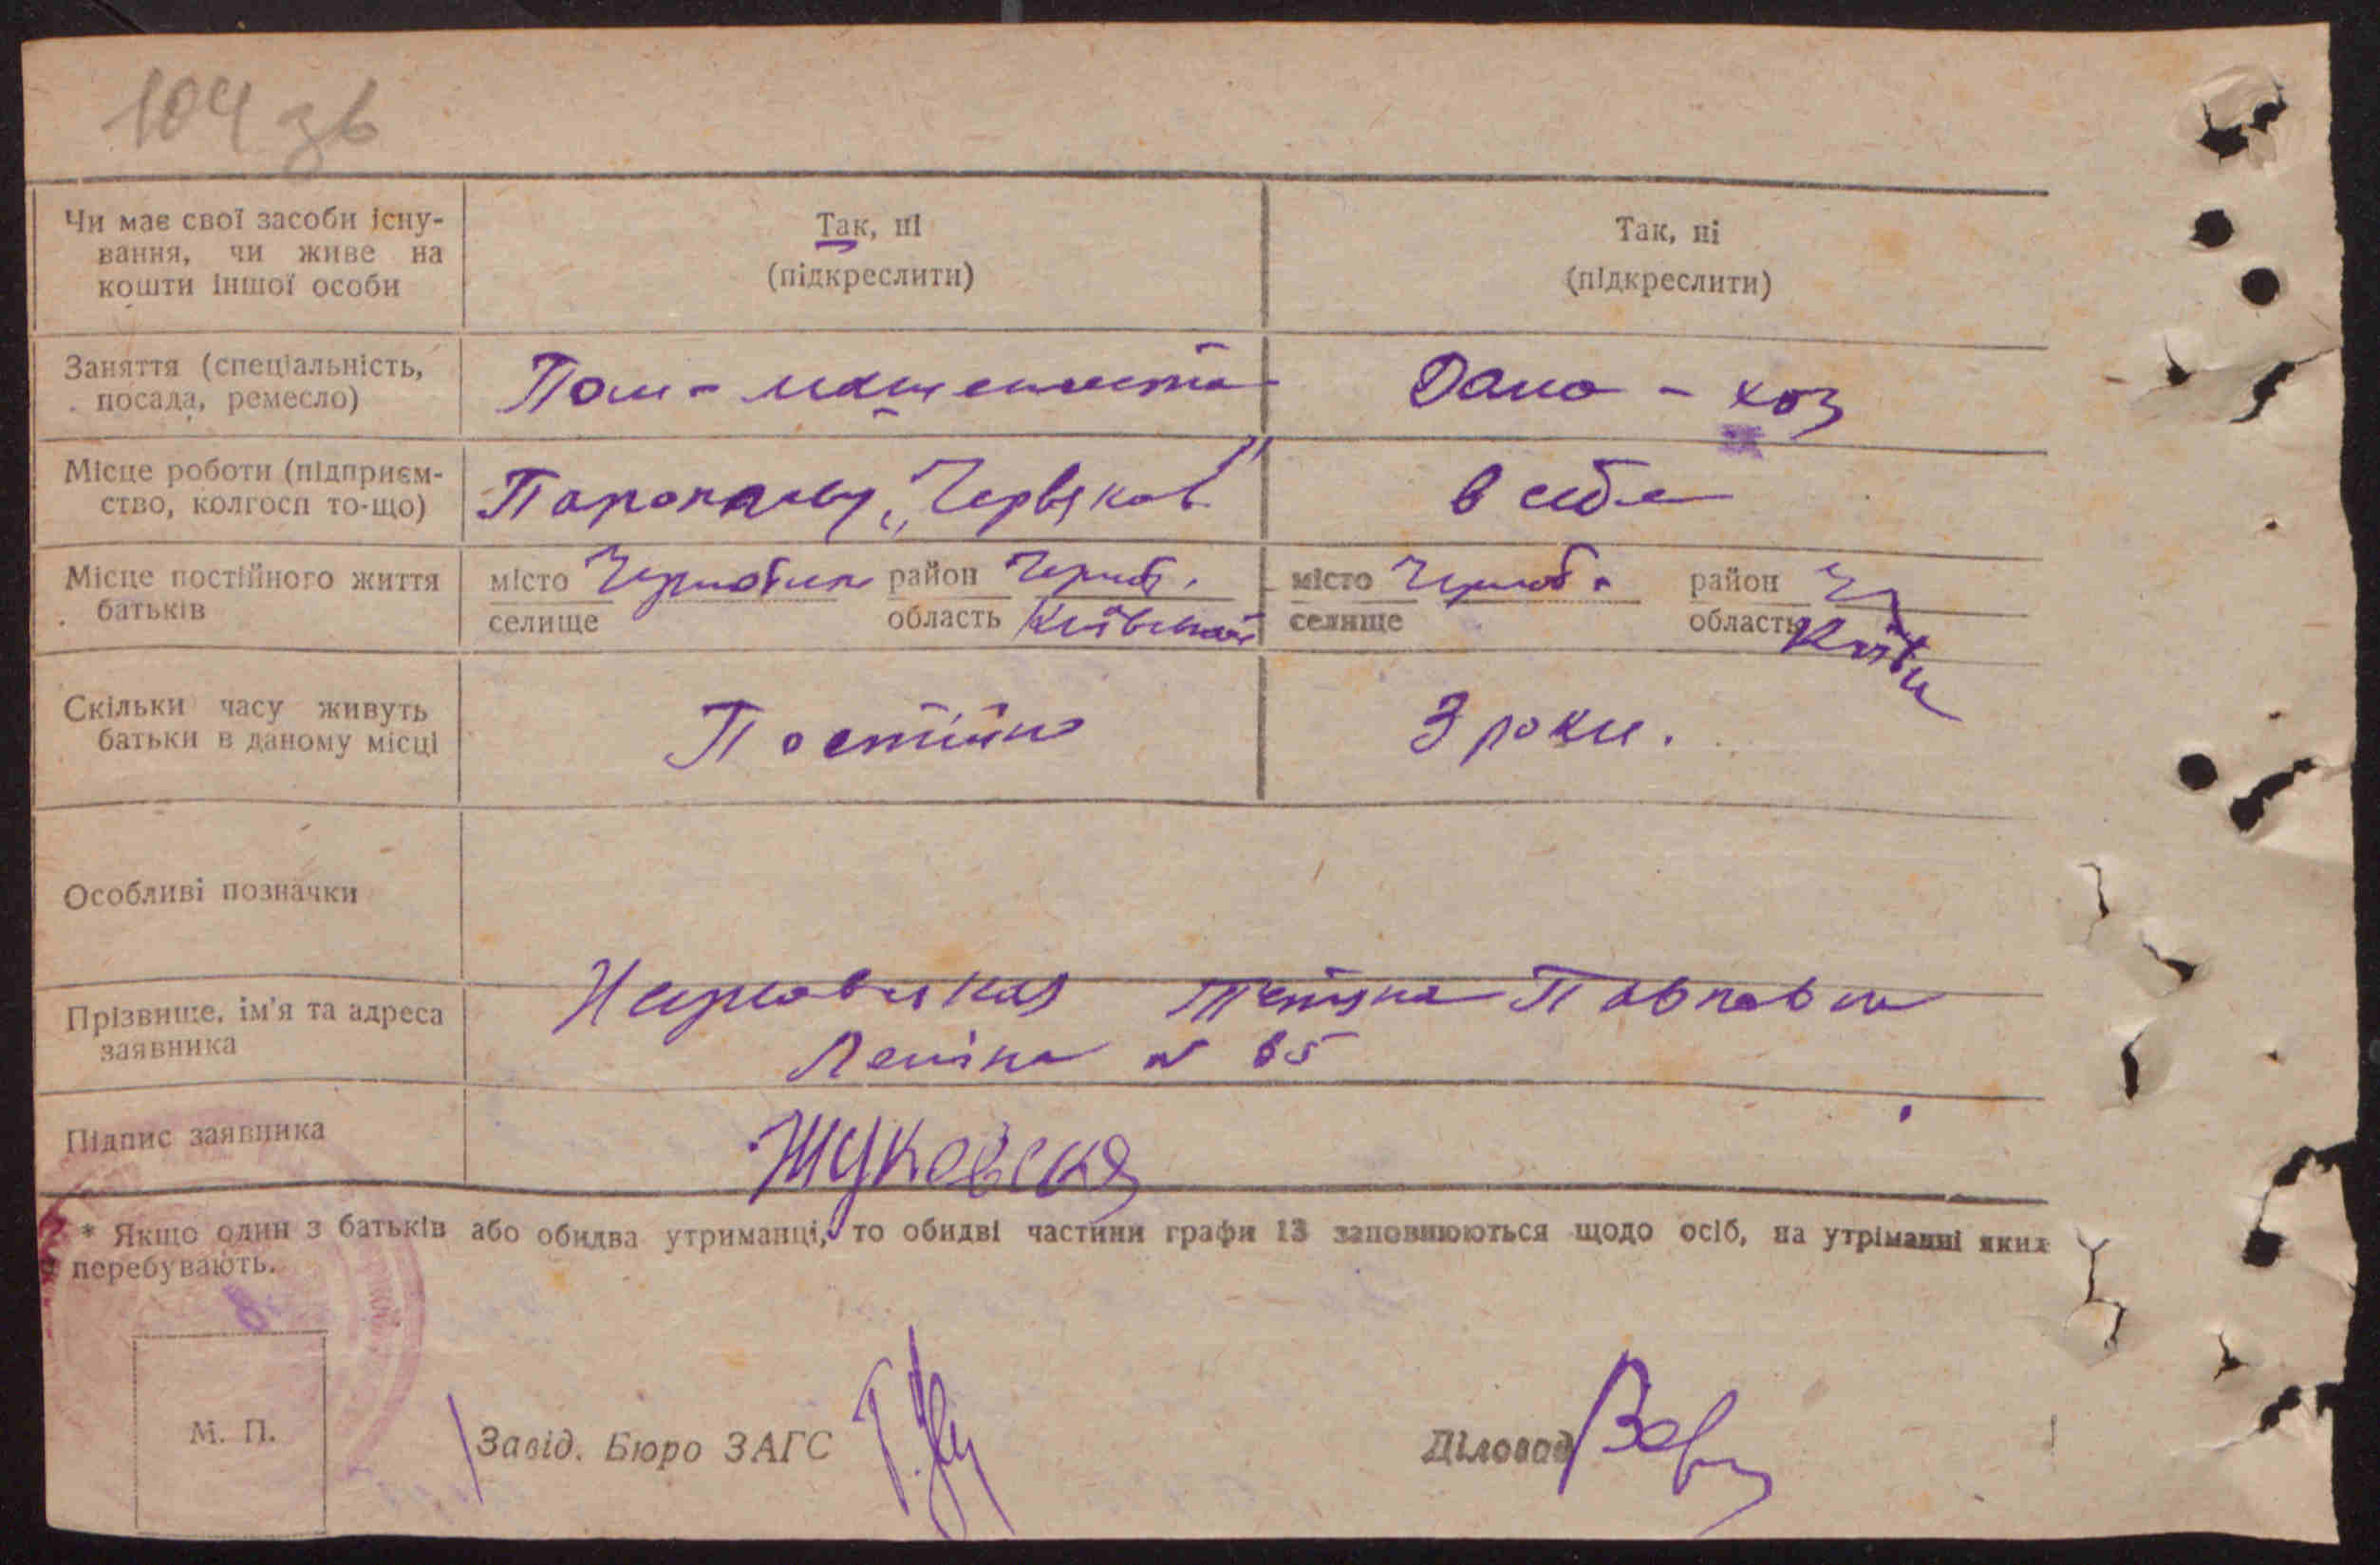 104 зв
Чи має свої засоби існу-
вання, чи живе на
кошти іншої особи
Так, ні
(підкреслити)
Так, ні
(підкреслити)
Заняття (спеціальність,
посада, ремесло)
Пом-машениста
Дамо - хоз
Місце роботи (підприєм-
ство, колгосп то-що)
Пароплав „Червяков"
в себе
Місце постійного життя
батьків
місто Чернобиле район Черноб.
селище область Київської
місто Черноб. район Ч
селище область Київ
Скільки часу живуть
батьки в даному місці
Постійно
3 роки.
Особливі позначки
Прізвище, ім'я та адреса
заявника
Тетяна Павловна
Леніна № 65
Підпис заявника
Жуковская
* Якщо один з батьків або обидва утриманці, то обидві частини графи 13 заповнюються щодо осіб, на утріманні яких
перебувають.
М. П.
Завід. Бюро ЗАГС
Діловод